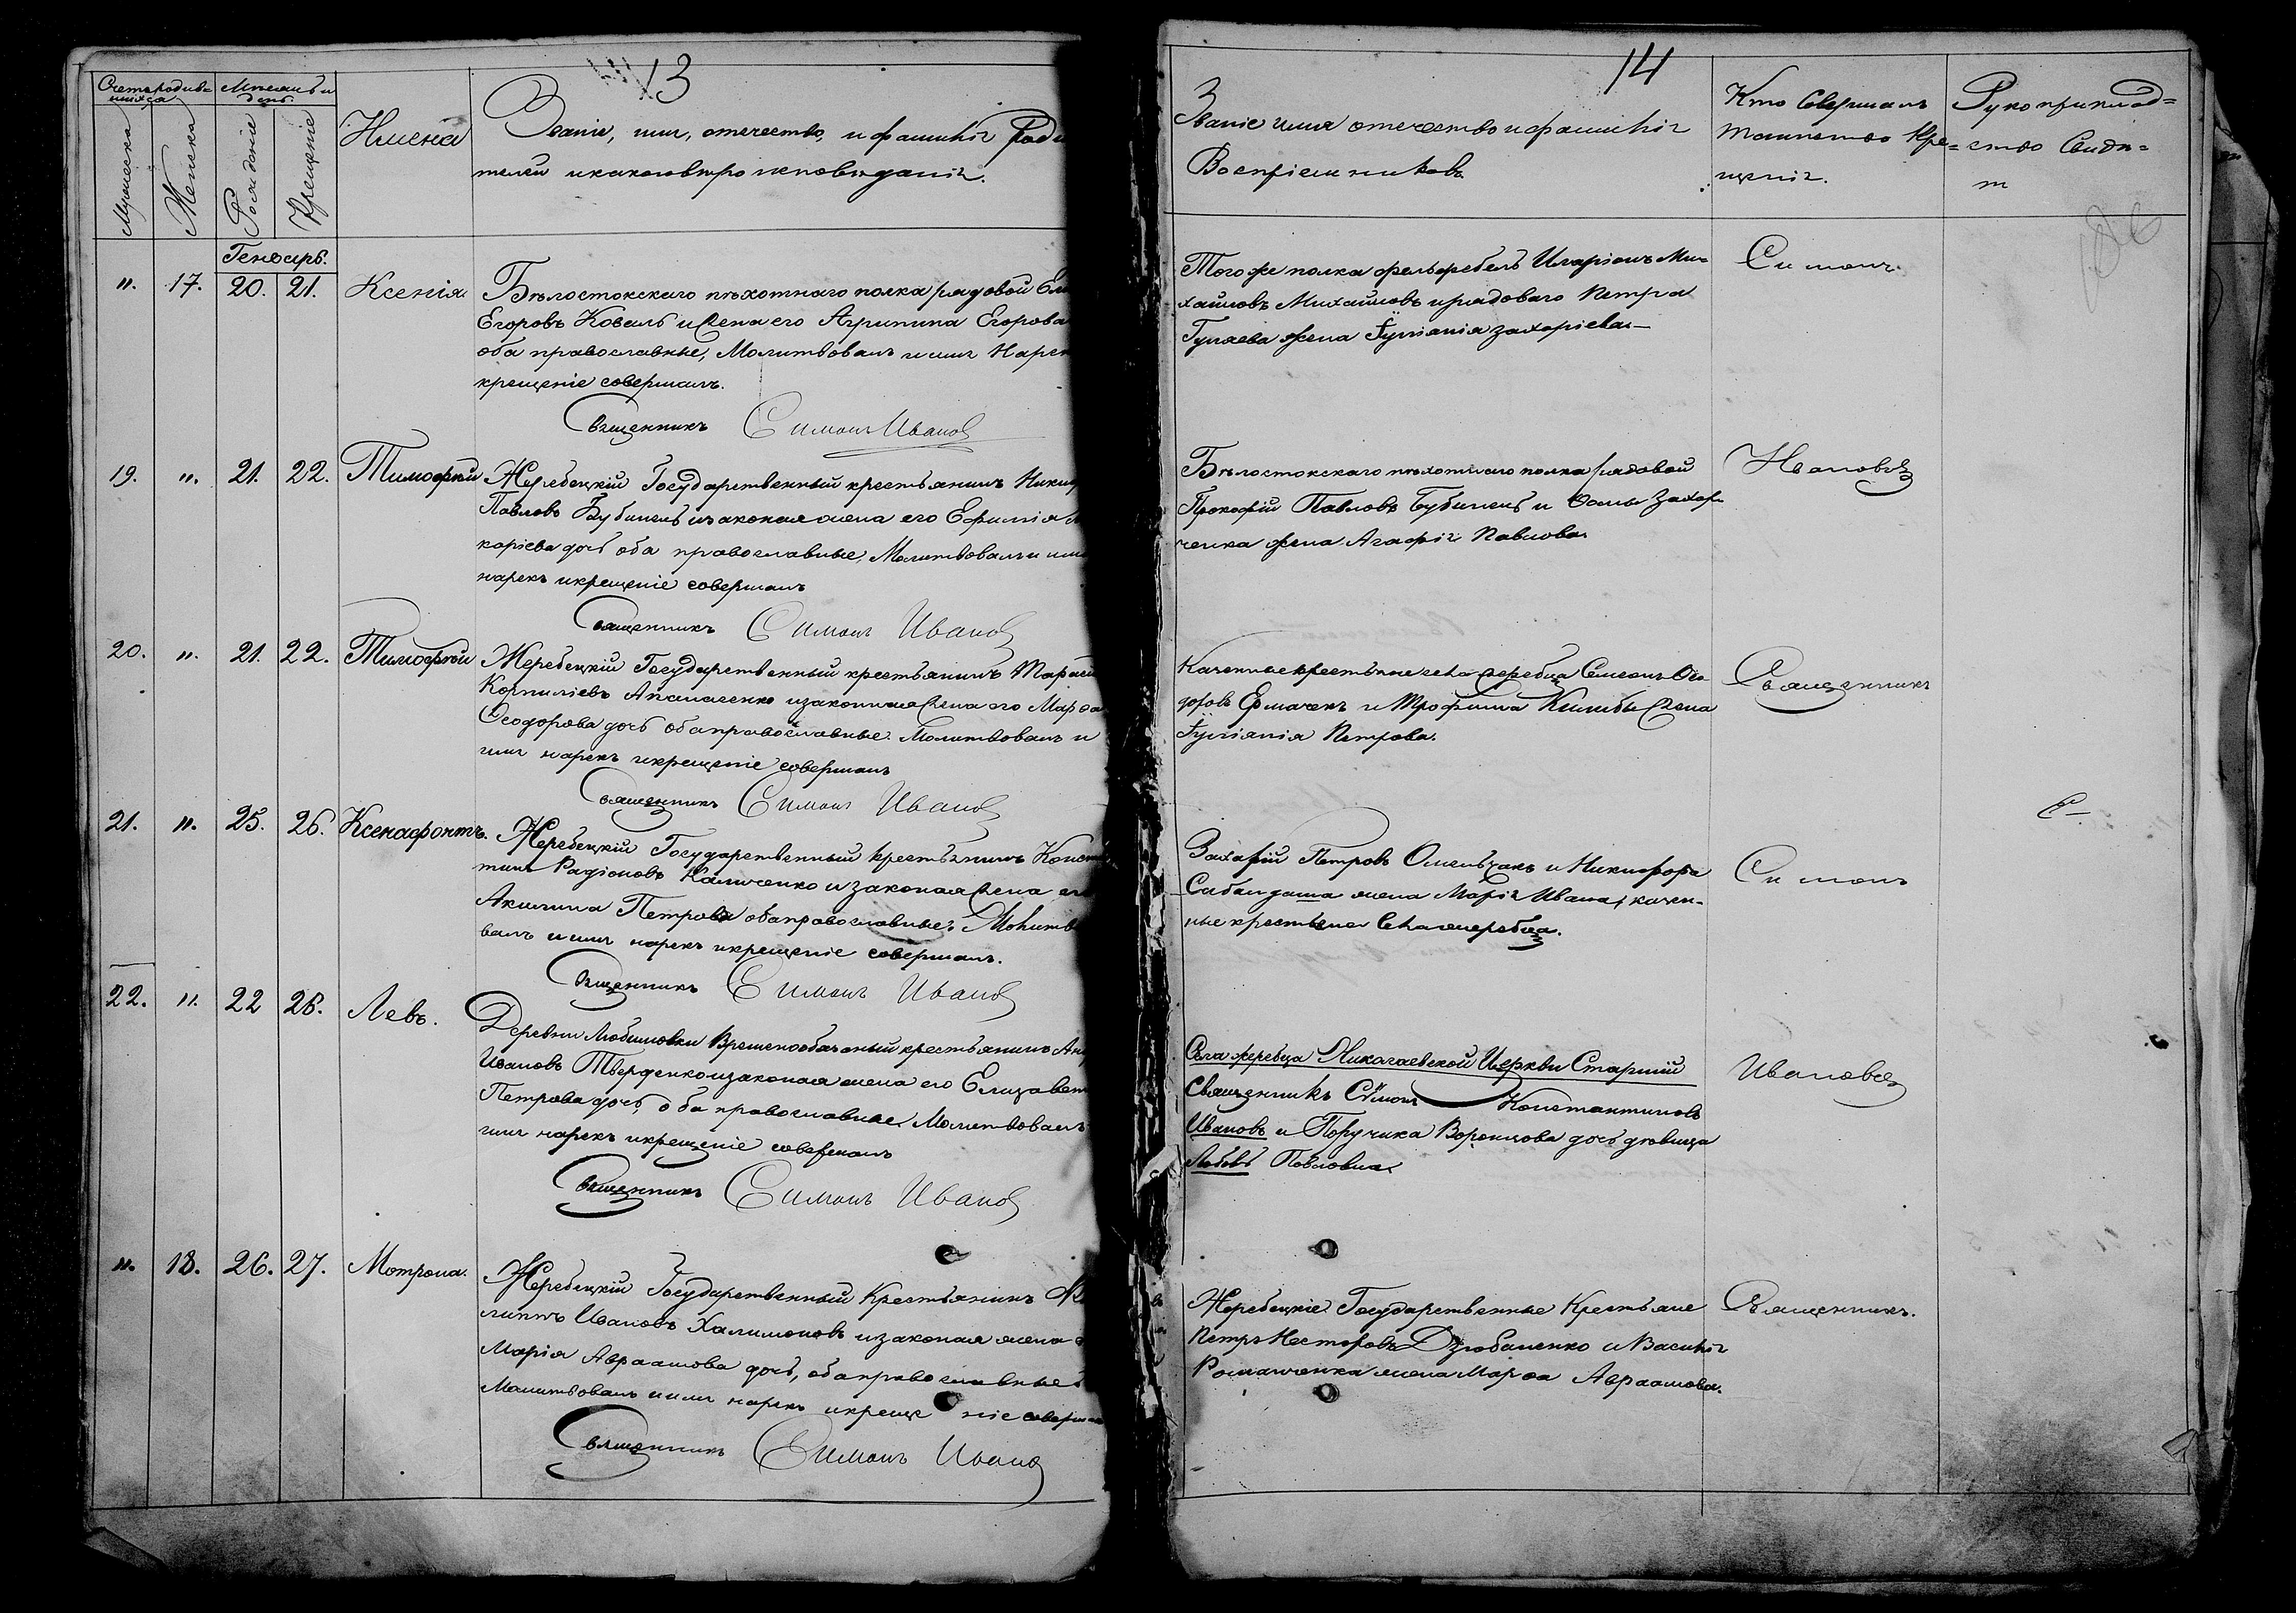 13
Счетъ родив-
шихся
Мѣсяцъ и
день.
Мужеска
Женска
Рожденіе
Крещеніе
Имена
Званіе, имя, отечество, и фамилія Роди
телей и какого вѣроисповѣданія.
Генварь.
"
17.
20.
21.
Ксенія
Бѣлостокскаго пѣхотнаго полка рядовой
Егоровъ Коваль и жена его Агрипина Егорова
оба православные, Молитвовалъ и имя Нарек
крещеніе совершалъ.
Священникъ Симонъ Иванов
19.
"
21.
22.
Тимофей
Жеребецкій Государственный крестьянинъ Ники
Павловъ Бубинецъ и законая жена его Ефимія
каріева дочь оба православные, Молитвовалъ и имя
нарекъ и крещеніе совершалъ
Священникъ Симонъ Иванов
20.
"
21.
22.
Тимофей
Жеребецкій Государственный крестьянинъ Тарасі
Корниліевъ Апанасенко и законная жена его Марѳа
Ѳеодорова дочь оба православные. Молитвовалъ и
имя нарекъ и крещеніе совершалъ
Священникъ Симонъ Иванов
21.
"
25.
26.
Ксенафонтъ.
Жеребецкій Государственный крестьянинъ Конст
тинъ Радіоновъ Каличенко и законая жена его
Акилина Петрова оба православные, Молитво
валъ и имя нарекъ и крещеніе совершалъ.
Священникъ Симонъ Иванов
22.
"
22
26.
Левъ.
Деревни Любимовки Временообязаный крестьянинъ
Ивановъ Тверденко и законая жена его Елизавет
Петрова дочь, оба православные, Молитвовалъ
имя нарекъ и крещеніе совершалъ
Священникъ Симонъ Иванов
"
18.
26.
27.
Мотрона.
Жеребецкій Государственный Крестьянинъ
липтъ Ивановъ Халимоновъ и законая жена е
Марія Авраамова дочь, оба православные
Молитвовалъ и имя нарекъ и креще ніе соверша
Священникъ Симонъ Иванов
14
Званіе имя отечество и фамилія
Воспріемниковъ
Кто Совершалъ
таинство Кре=
щенія.
Рукоприклад=
ство Свидѣ=
т
Того же полка фельдфебель Иларіонъ Ми-
хайловъ Михайловъ и рядоваго Петра
Гуляева жена Іуліанія Захаріева—
Симонъ
Бѣлостокскаго пѣхотнаго полка рядовой
Прокофій Павловъ Бубинецъ и Ѳомы Захар
ченка жена Агафія Павлова
Ивановъ
Казенные крестьяне села жеребца Семенъ Ѳео-
доровъ Ермачекъ и Трофима Килибы жена
Іуліанія Петрова.
Священникъ
Захарій Петровъ Омельчакъ и Никифора
Сабандаша жена Марія Ивана, казен-
ные крестьяне Села жеребца.
Симонъ
Села жеребца Николаевской Церкви Старшій
Священникъ Симонъ Константиновъ
Ивановъ и Поручика Воронцова дочь дѣвица
Любовь Павловна.
Ивановъ
Жеребецкіе Государственные Крестьяне
Петръ Несторовъ Дзюбаненко и Василія
Романченка жена Марѳа Авраамова.
Священникъ.